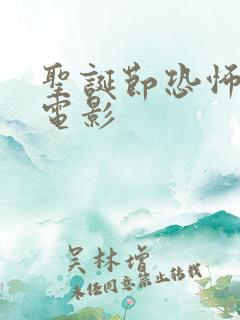 聖誕節恐怖
電影
吴林增
未经同意禁止转载